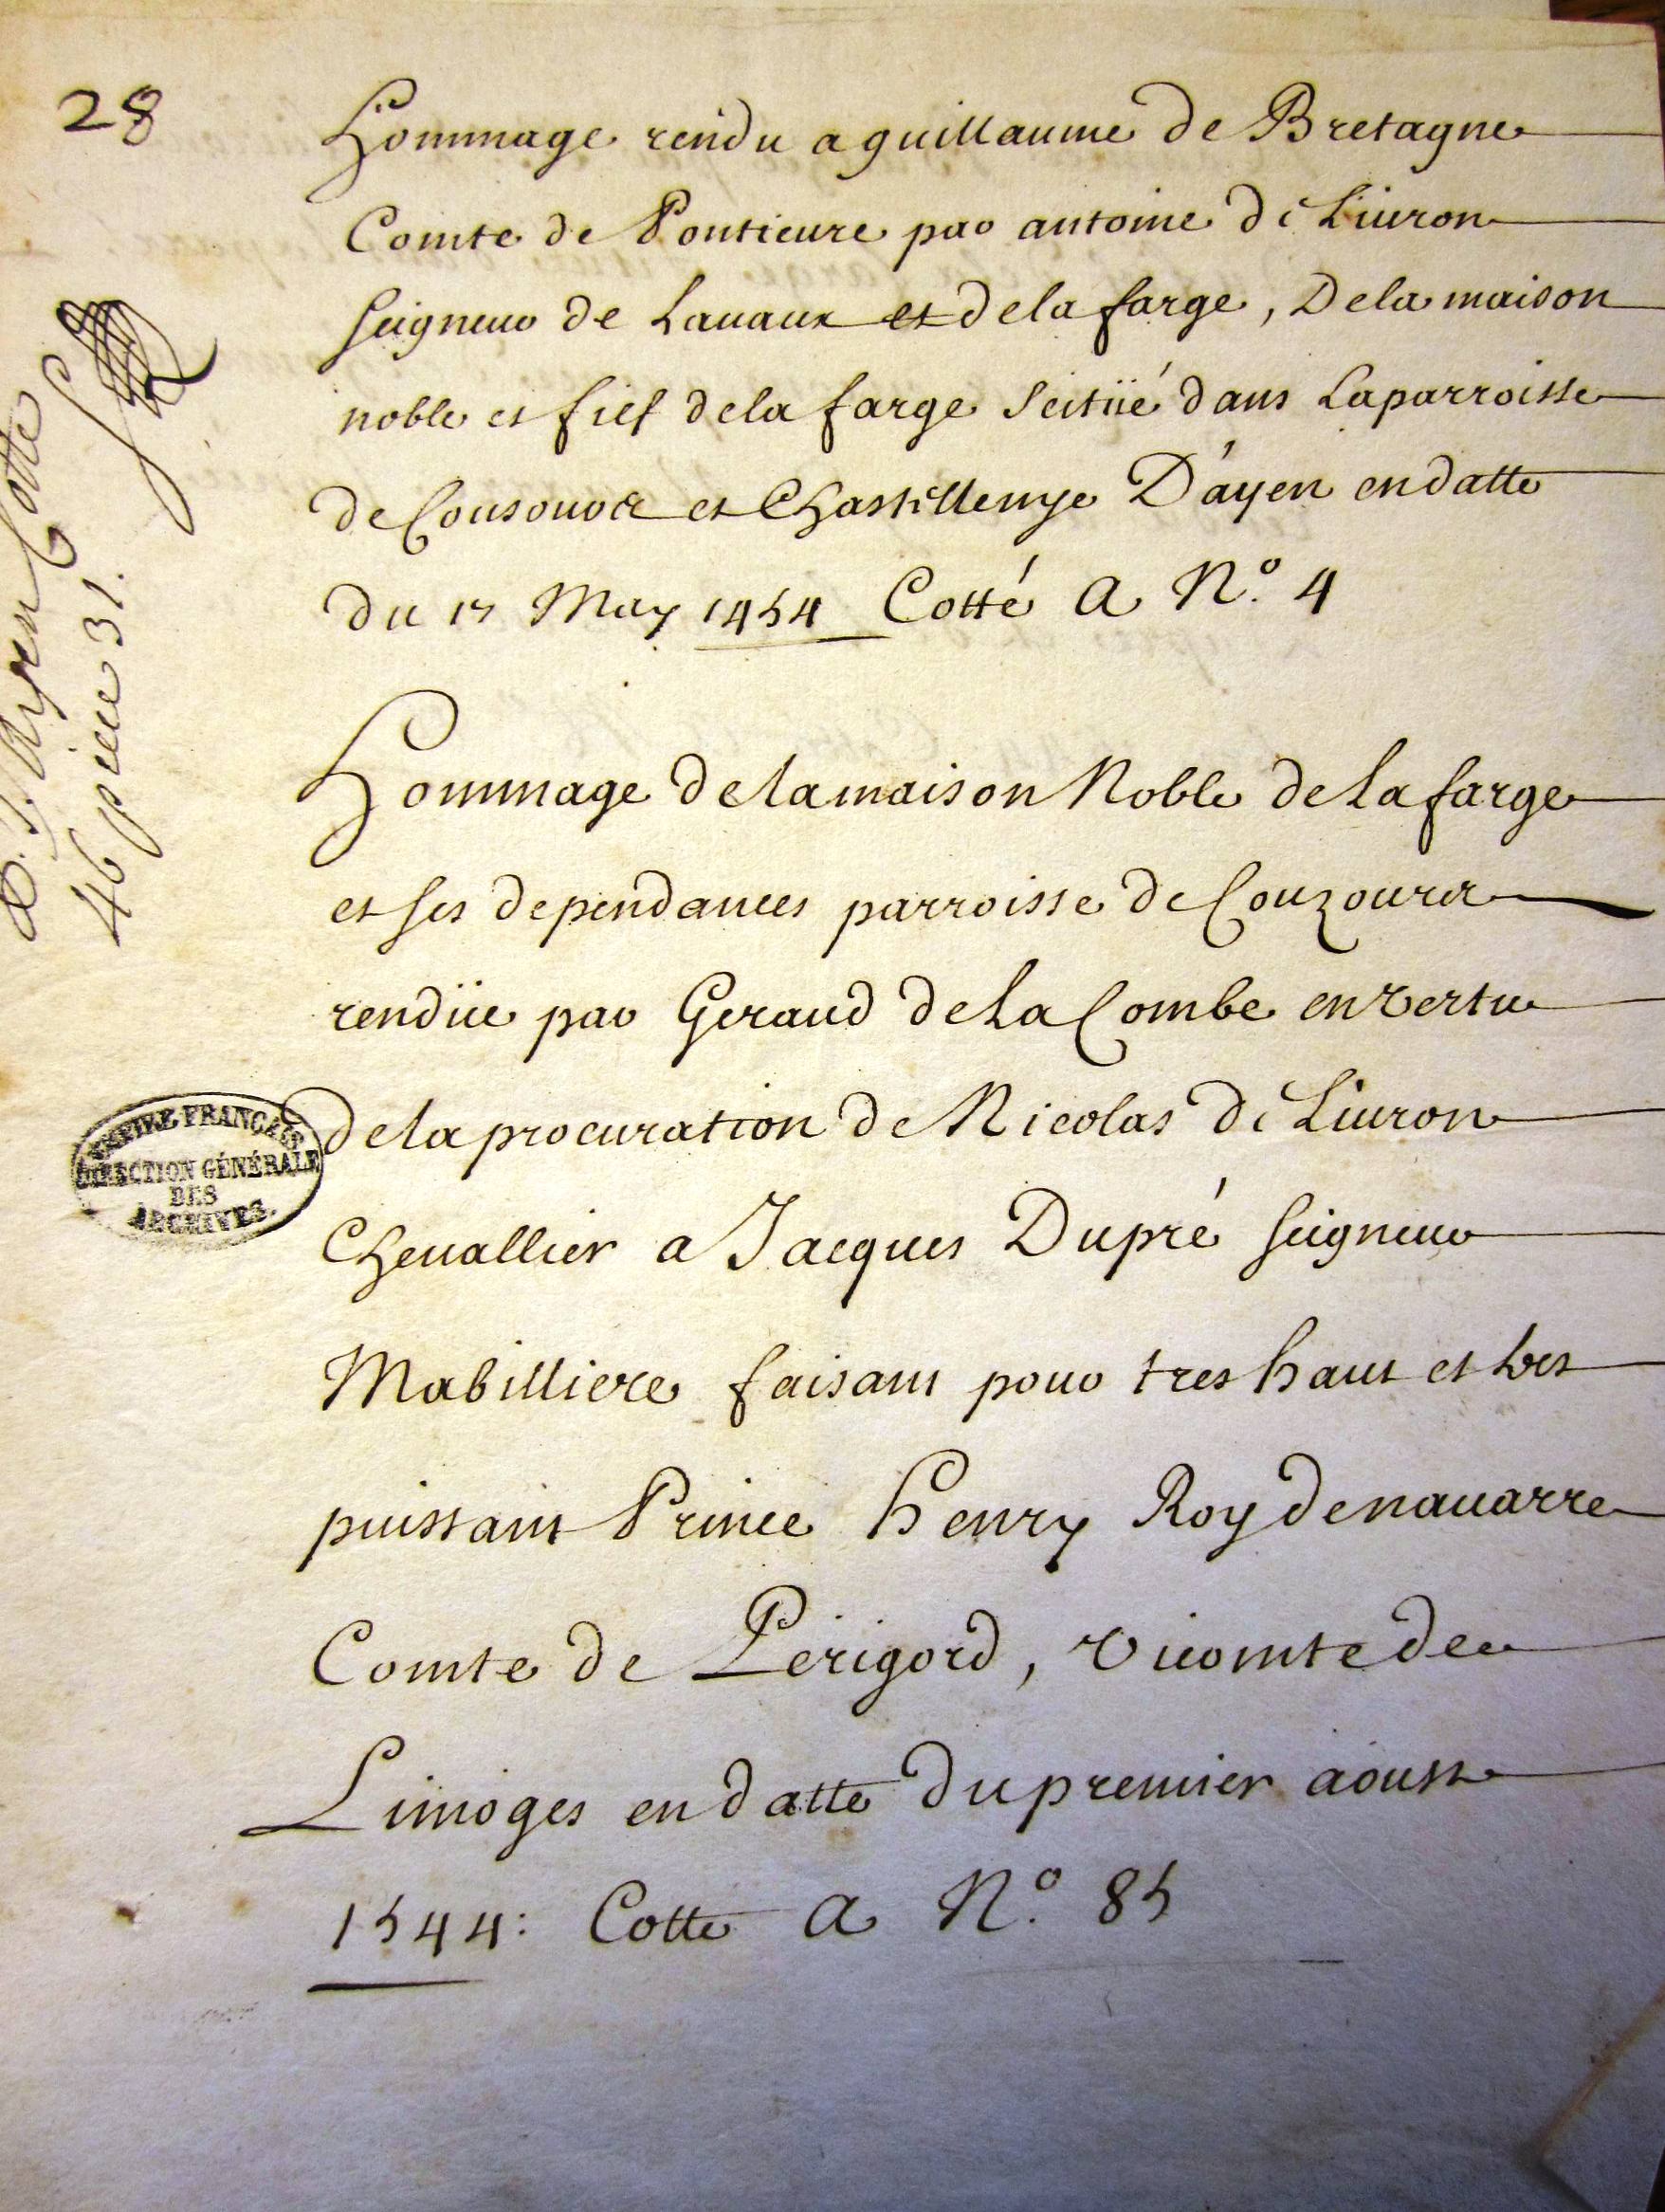 28
Hommage rendu a guillaume de Bretagne
Comte de Pontieure par antoine de Liuron
seigneur de Lauaux et dela farge, Dela maison
noble et fief dela farge scitüé dans Laparroisse
de Cousouor et Chastellenye D'ayen endatte
du 17 May 1454 Cotté A N.º 4
Cotte
46 piece 31.
Hommage delamaison Noble de Lafarge
et ses dependances parroisse de Couzourx
rendüe par Geraud de La Combe envertu
delaprocuration de Nicolas de Liuron
Cheuallier a Jacques Dupré seigneur
Mabilliere faisant pour tres haut et tres
puissant Prince henry Roy denauarre
Comte de Perigord, vicomte de
Limoges en datte dupremier aoust
1544: Cotte A N.º 85
EMPIRE FRANÇAIS
DIRECTION GÉNÉRALE
DES
ARCHIVES.